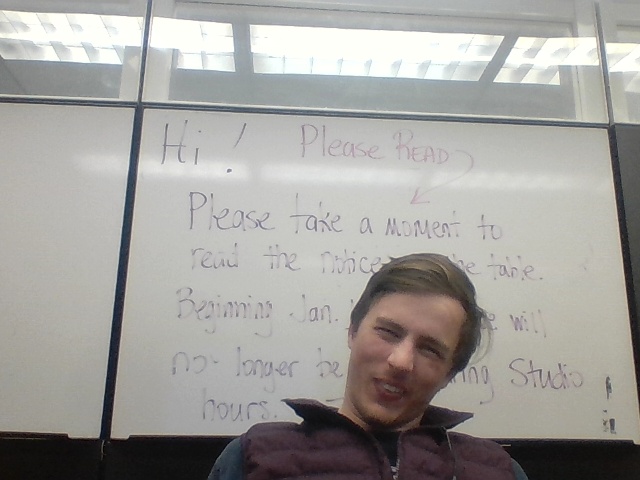 Hi! Please READ
Please take a moment to
read the notice the table.
Beginning Jan. will
no longer be Studio
hours.